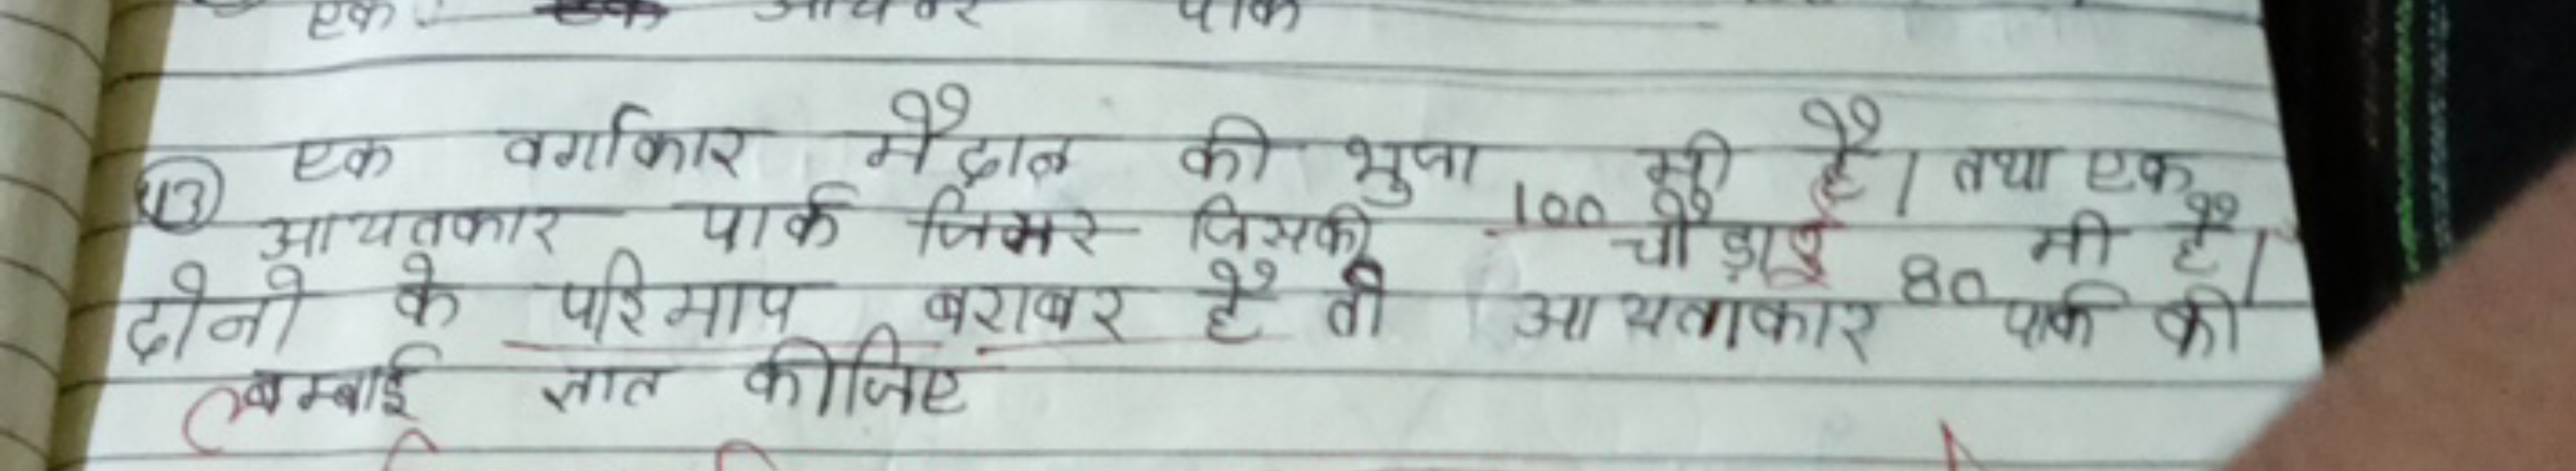 एक आयतकार पार्क
(13) एक वर्गाकार मैदान की भुजा 100 मी है। तथा एक
आयतकार पार्क जिसकी चौड़ाई 80 मी है।
दोनो के परिमाप बराबर है तो आयताकार पार्क की
लम्बाई ज्ञात कीजिए